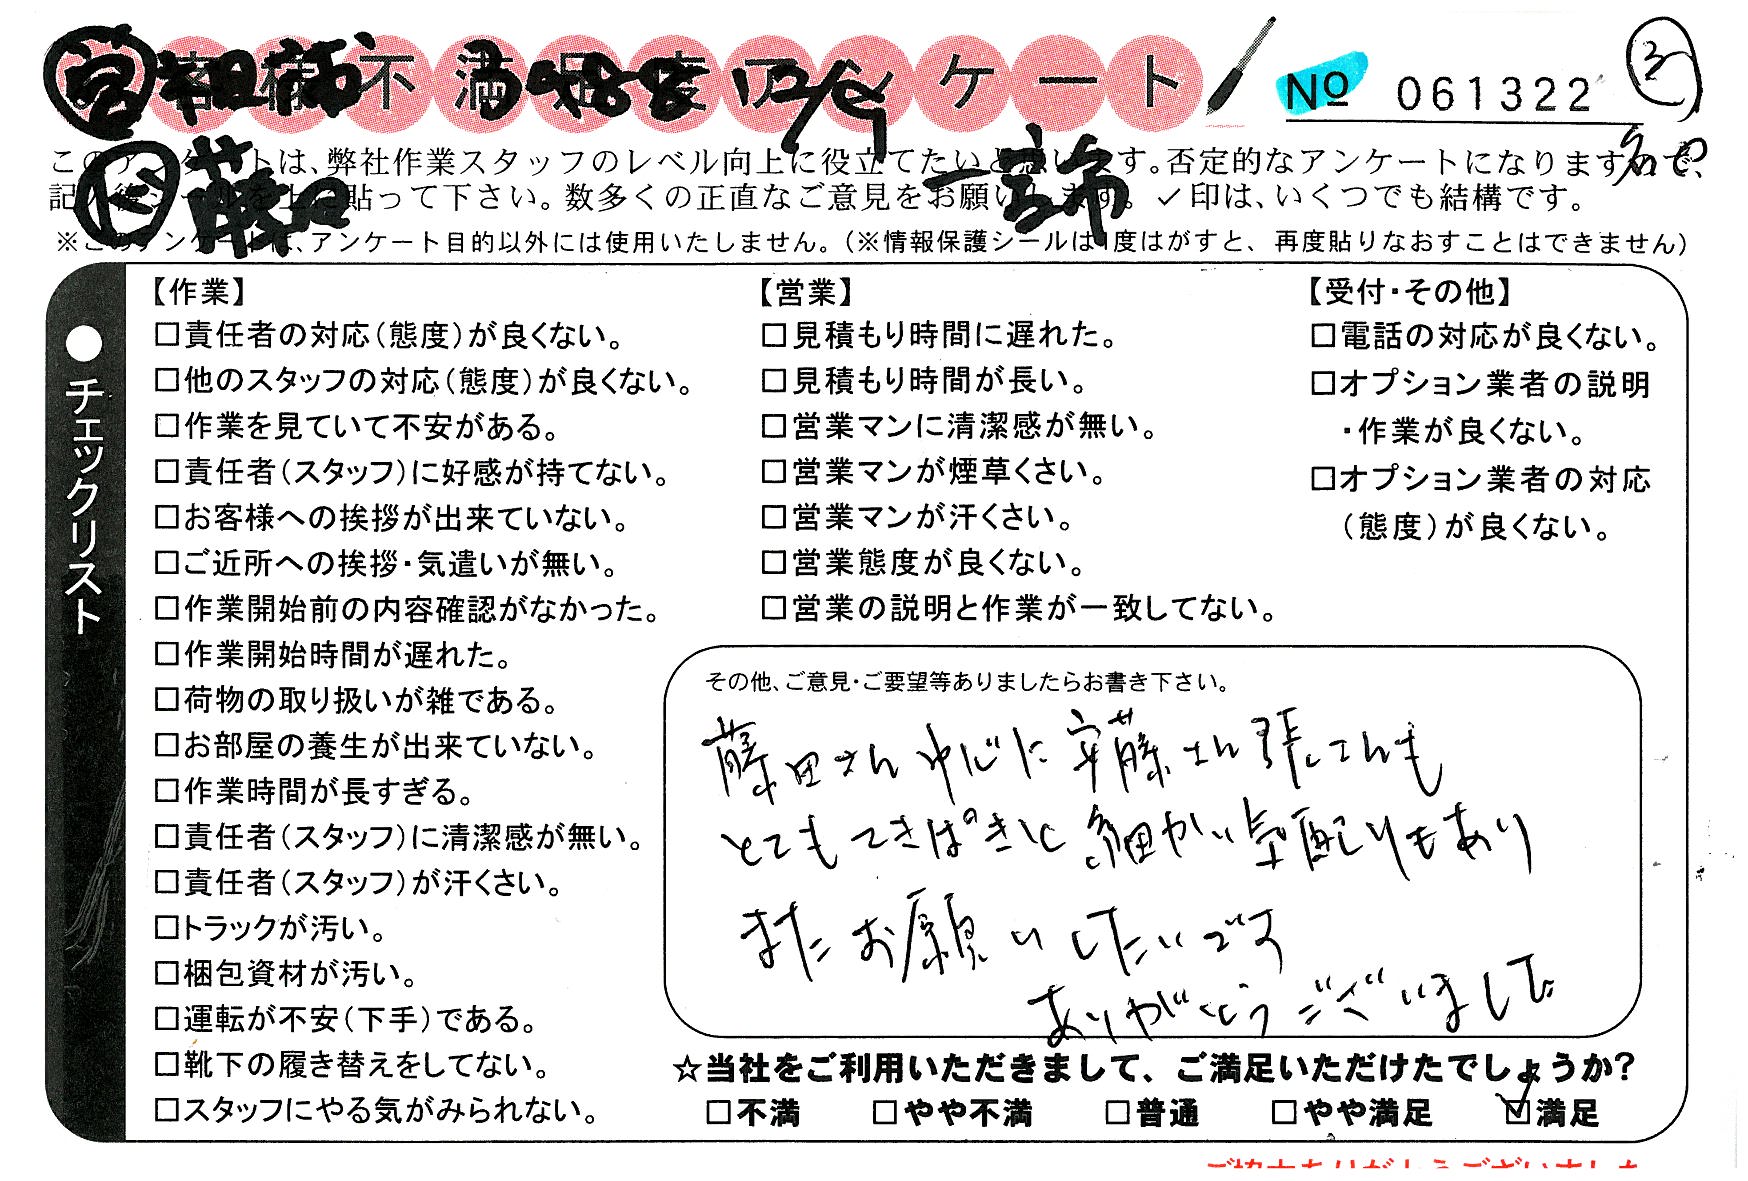 お客様不満足度アンケート
No 061322
このアンケートは、弊社作業スタッフのレベル向上に役立てたいと思います。否定的なアンケートになりますので、
記入後シールを上に貼って下さい。数多くの正直なご意見をお願いします。✓印は、いくつでも結構です。
※このアンケートは、アンケート目的以外には使用いたしません。(※情報保護シールは1度はがすと、再度貼りなおすことはできません)
12/9
●チェックリスト
【作業】
□責任者の対応(態度)が良くない。
□他のスタッフの対応(態度)が良くない。
□作業を見ていて不安がある。
□責任者(スタッフ)に好感が持てない。
□お客様への挨拶が出来ていない。
□ご近所への挨拶・気遣いが無い。
□作業開始前の内容確認がなかった。
□作業開始時間が遅れた。
□荷物の取り扱いが雑である。
□お部屋の養生が出来ていない。
□作業時間が長すぎる。
□責任者(スタッフ)に清潔感が無い。
□責任者(スタッフ)が汗くさい。
□トラックが汚い。
□梱包資材が汚い。
□運転が不安(下手)である。
□靴下の履き替えをしてない。
□スタッフにやる気がみられない。
【営業】
□見積もり時間に遅れた。
□見積もり時間が長い。
□営業マンに清潔感が無い。
□営業マンが煙草くさい。
□営業マンが汗くさい。
□営業態度が良くない。
□営業の説明と作業が一致してない。
【受付・その他】
□電話の対応が良くない。
□オプション業者の説明
・作業が良くない。
□オプション業者の対応
(態度)が良くない。
その他、ご意見・ご要望等ありましたらお書き下さい。
藤田さん中心に安藤さん張さんも
とてもてきぱきと細かい気配りもあり
またお願いしたいです
ありがとうございました
☆当社をご利用いただきまして、ご満足いただけたでしょうか?
□不満 □やや不満 □普通 □やや満足 ☑満足
ご協力ありがとうございました